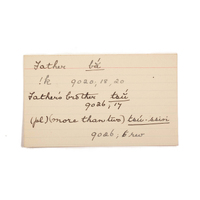 Father bá
!k. 9020, 18, 20
Father's brother tsú
9026, 17
(pl) (more than two) tsú-
9026, 6